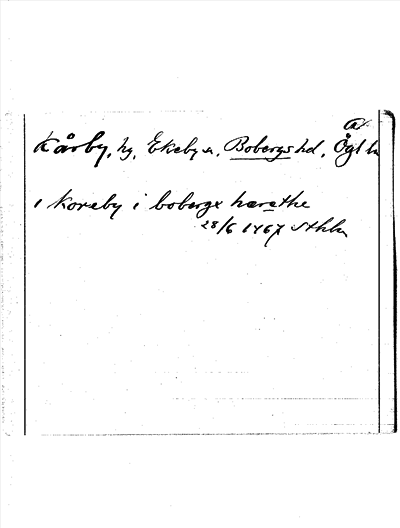 at
Kårby, hg, Ekeby sn, Bobergs hd, Ögl ln
i Koreby i boberge hærethe
28/6 1467 Sthlm